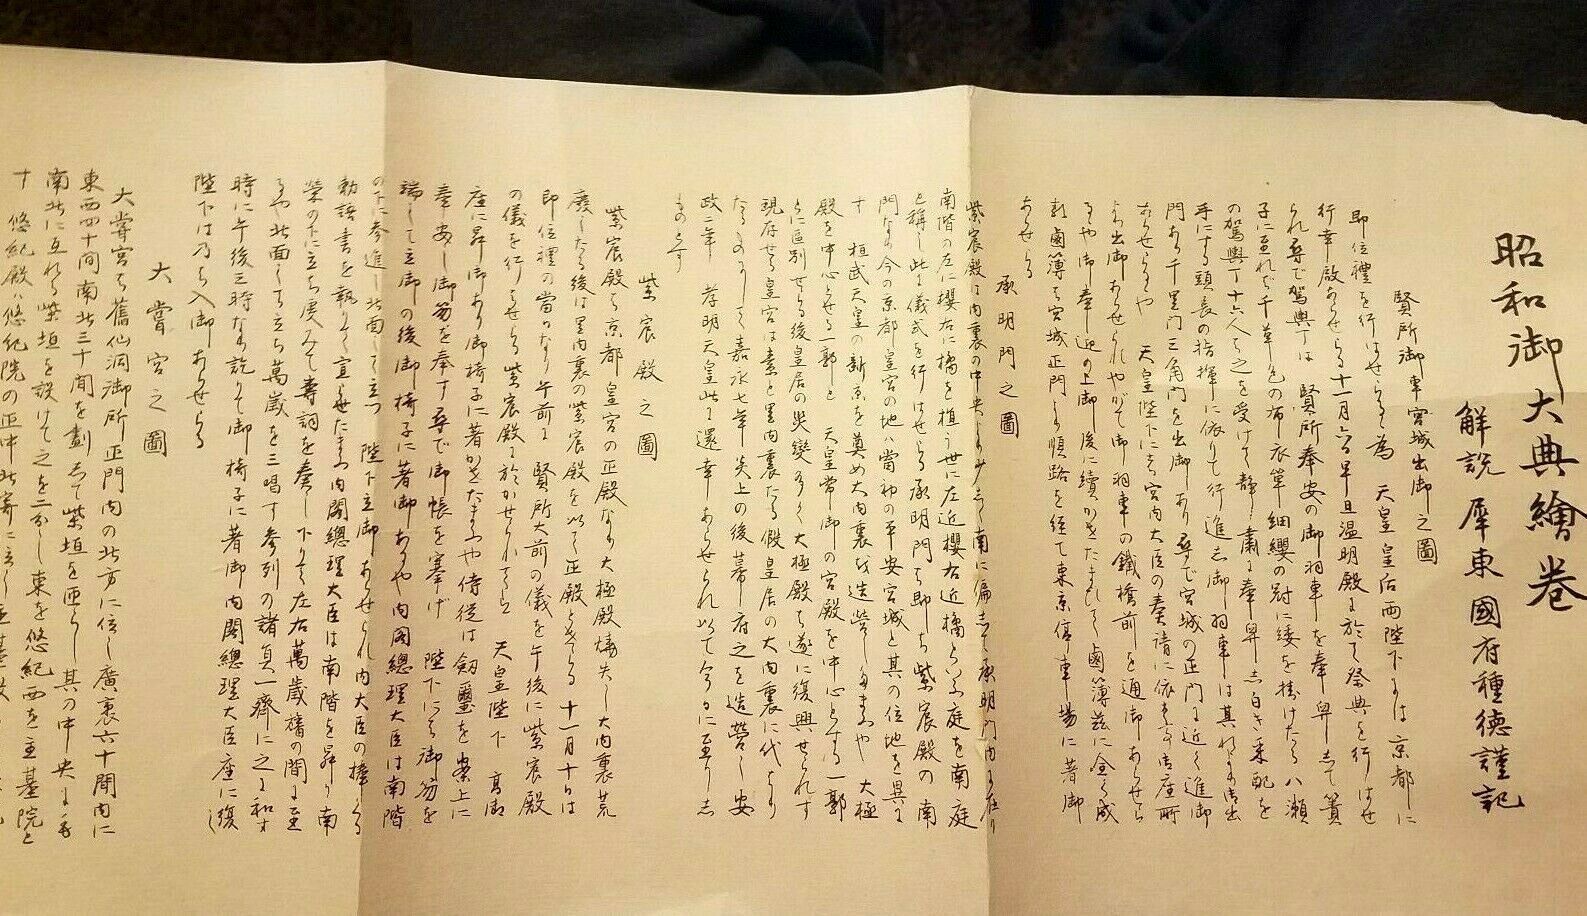 昭和御大典繪卷
解説 犀東國府種德謹記
賢所御車宮城出御之圖
即位禮を行はせらるゝ為 天皇皇后両陛下には京都に
行幸啓あらせらる十一月六日早旦温明殿に於て祭典を行はせ
られ尋で駕輿丁は 賢所奉安の御羽車を奉舁して簀
子に至れば千草色の布衣單細纓の冠に緌を掛けたる八瀬
の駕輿丁十六人之を受けて静肅に奉舁し白き采配を
手にする頭長の指揮に依りて行進し御羽車は其れより出
門あり千里門三角門を出御あり尋で宮城の正門に近く進御
あらせらるゝや 天皇陛下には宮内大臣の奏請に依り御座所
より出御あらせられやがて御羽車の鐵橋前を通御あらせら
るゝや御奉迎の上御後に續かせたまひて鹵簿茲に全く成
り鹵簿は宮城正門より順路を経て東京停車場に著御
あらせらる
承明門之圖
紫宸殿は内裏の中央より少しく南に偏して承明門内に在り
南階の左に櫻右に橘を植う世に左近櫻右近橘といふ庭を南庭
と称し此に儀式を行はせらる承明門は即ち紫宸殿の南
門なり今の京都皇宮の地は當初の平安宮城と其の位地を異に
す 桓武天皇の新京を奠め大内裏を造営したまふや 大極
殿を中心とせる一郭と 天皇常御の宮殿を中心とする一郭
とに區別せる後皇居の災變多く大極殿は遂に復興せられず
現存せる皇宮は素と里内裏たる假皇居の大内裏に代はり
たるものにして嘉永七年炎上の後幕府之を造営し安
政二年 孝明天皇此に還幸あらせられ以て今日に至りし
ものとす
紫宸殿之圖
紫宸殿は京都皇宮の正殿なり大極殿燒失し大内裏荒
廢したる後は里内裏の紫宸殿を以て正殿とせらる十一月十日は
即位禮の當日なり午前に 賢所大前の儀を午後に紫宸殿
の儀を行はせらる紫宸殿に於かせられては 天皇陛下 高御
座に昇御あり御椅子に著かせたまふや侍從は劒璽を案上に
奉安し御笏を奉す尋で御帳を搴げ 陛下には御笏を
端して立御の後御椅子に著御あるや内閣總理大臣は南階
の下に参進し北面して立つ 陛下立御あらせられ内大臣の捧ぐる
勅語書を執りて宣らせたまふ内閣總理大臣は南階を昇り南
榮の下に立ち畏みて壽詞を奏し下りて左右萬歳旛の間に至
るや北面して立ち萬歳を三唱す参列の諸員一齊に之に和す
時に午後三時なり訖りて御椅子に著御内閣總理大臣座に復し
陛下は乃ち入御あらせらる
大嘗宮之圖
大嘗宮は舊仙洞御所正門内の北方に位し廣袤六十間内に
東西四十間南北三十間を劃して柴垣を匝らし其の中央に
南北に亙れる柴垣を設けて之を二分し東を悠紀西を主基院と
す 悠紀殿は悠紀院の正中北寄に立し